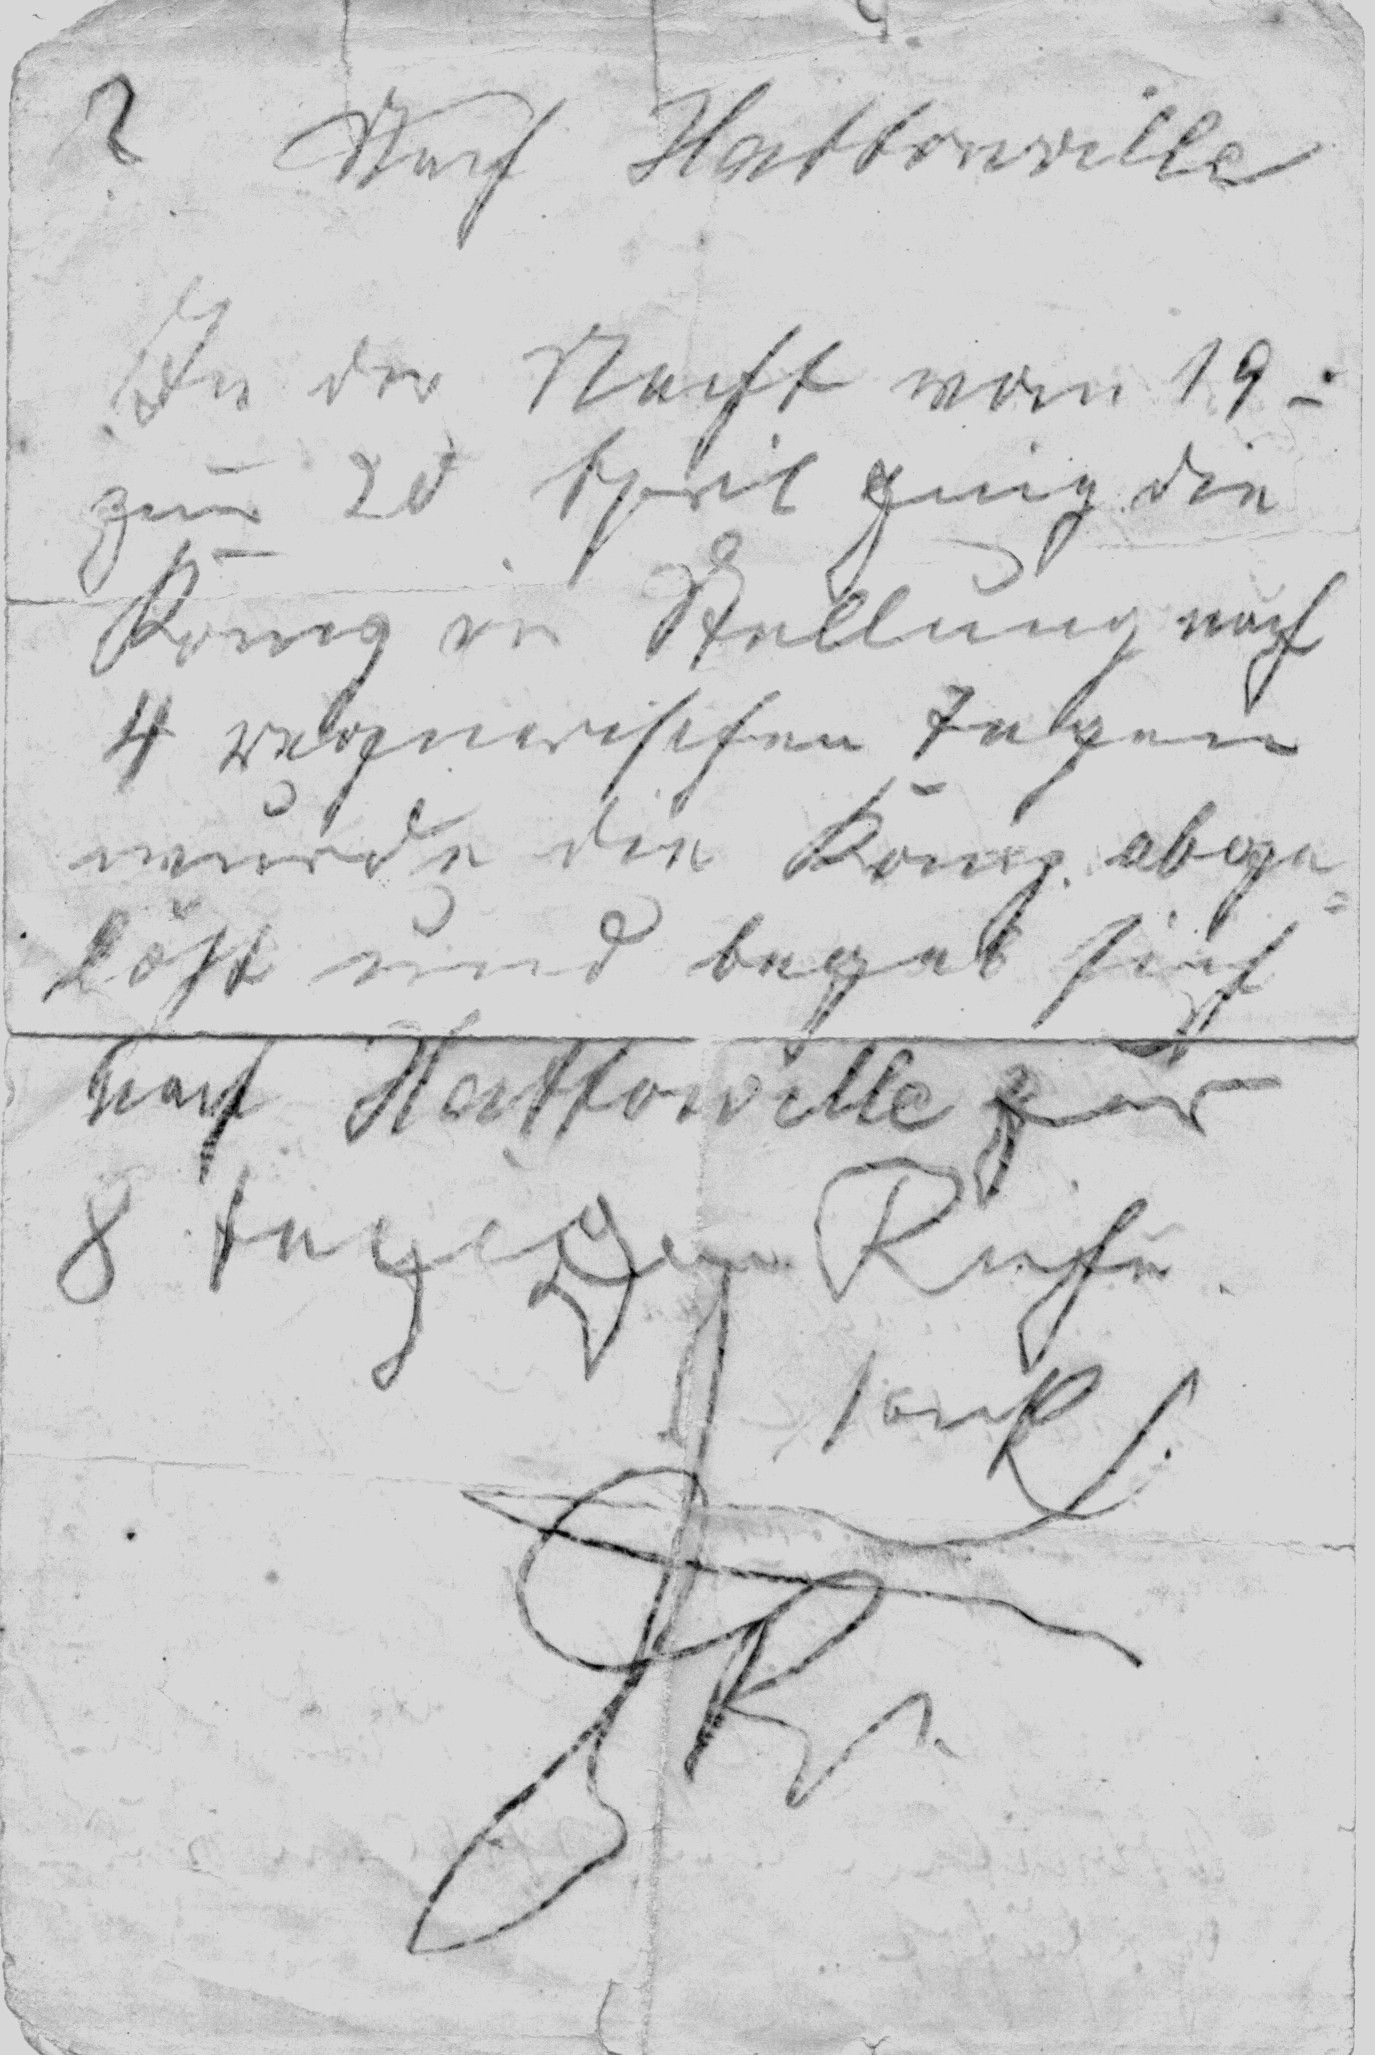 ? Nach Hattonville
In der Nacht vom 19.
zum 20 April ging die
Komp in Stellung nach
4 regnerischen Tagen
wurde die Komp. abge=
löst und begab sich
nach Hattonville zur
8 tägigen Ruhe.